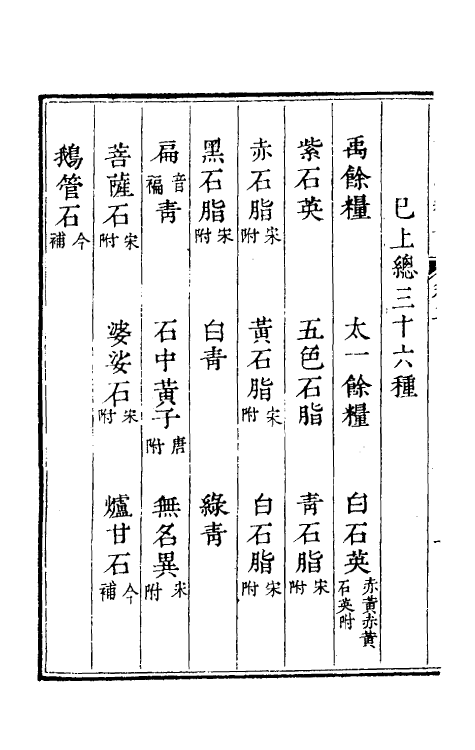 已上總三十六種
禹餘糧 太一餘糧 白石英赤黃赤黃石英附
紫石英 五色石脂 青石脂宋附
赤石脂宋附 黃石脂宋附 白石脂宋附
黑石脂宋附 白青 綠青
扁音褊青 石中黃子唐附 無名異宋附
菩薩石宋附 婆娑石宋附 爐甘石今補
鵝管石今補